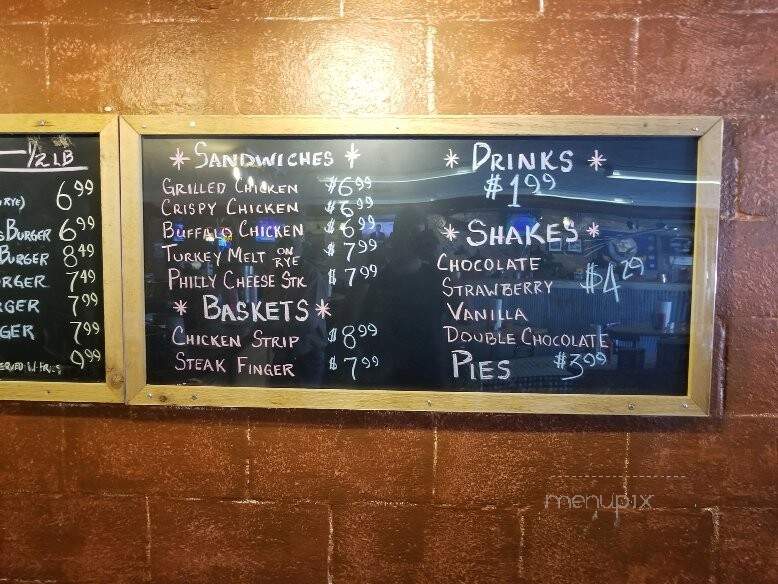 1/2 LB
RYE) 6.99
BURGER 6.99
BURGER 8.49
RGER 7.49
GER 7.99
GER 7.99
9.99
* SANDWICHES *
GRILLED CHICKEN $6.99
CRISPY CHICKEN $6.99
BUFFALO CHICKEN $6.99
TURKEY MELT ON RYE $7.99
PHILLY CHEESE STK $7.99
* BASKETS *
CHICKEN STRIP $8.99
STEAK FINGER $7.99
* DRINKS *
$1.99
* SHAKES *
CHOCOLATE
STRAWBERRY $4.29
VANILLA
DOUBLE CHOCOLATE
PIES $3.99
menupix